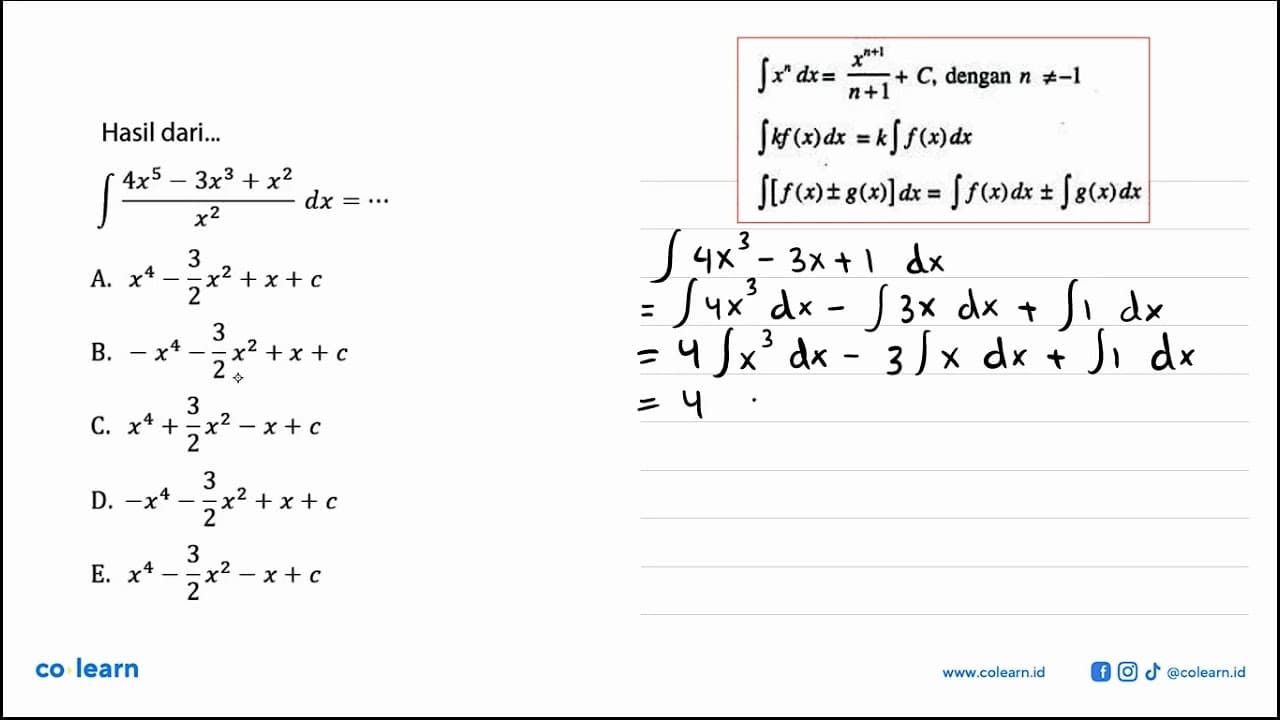 Hasil dari...
∫ (4x⁵ − 3x³ + x²)/x² dx = ⋯
A. x⁴ − 3/2 x² + x + c
B. − x⁴ − 3/2 x² + x + c
C. x⁴ + 3/2 x² − x + c
D. −x⁴ − 3/2 x² + x + c
E. x⁴ − 3/2 x² − x + c
∫xⁿ dx = xⁿ⁺¹/(n+1) + C, dengan n ≠ −1
∫kf(x)dx = k∫f(x)dx
∫[f(x) ± g(x)]dx = ∫f(x)dx ± ∫g(x)dx
∫ 4x³ − 3x + 1 dx
= ∫4x³ dx − ∫3x dx + ∫1 dx
= 4∫x³ dx − 3∫x dx + ∫1 dx
= 4 .
co learn
www.colearn.id
@colearn.id